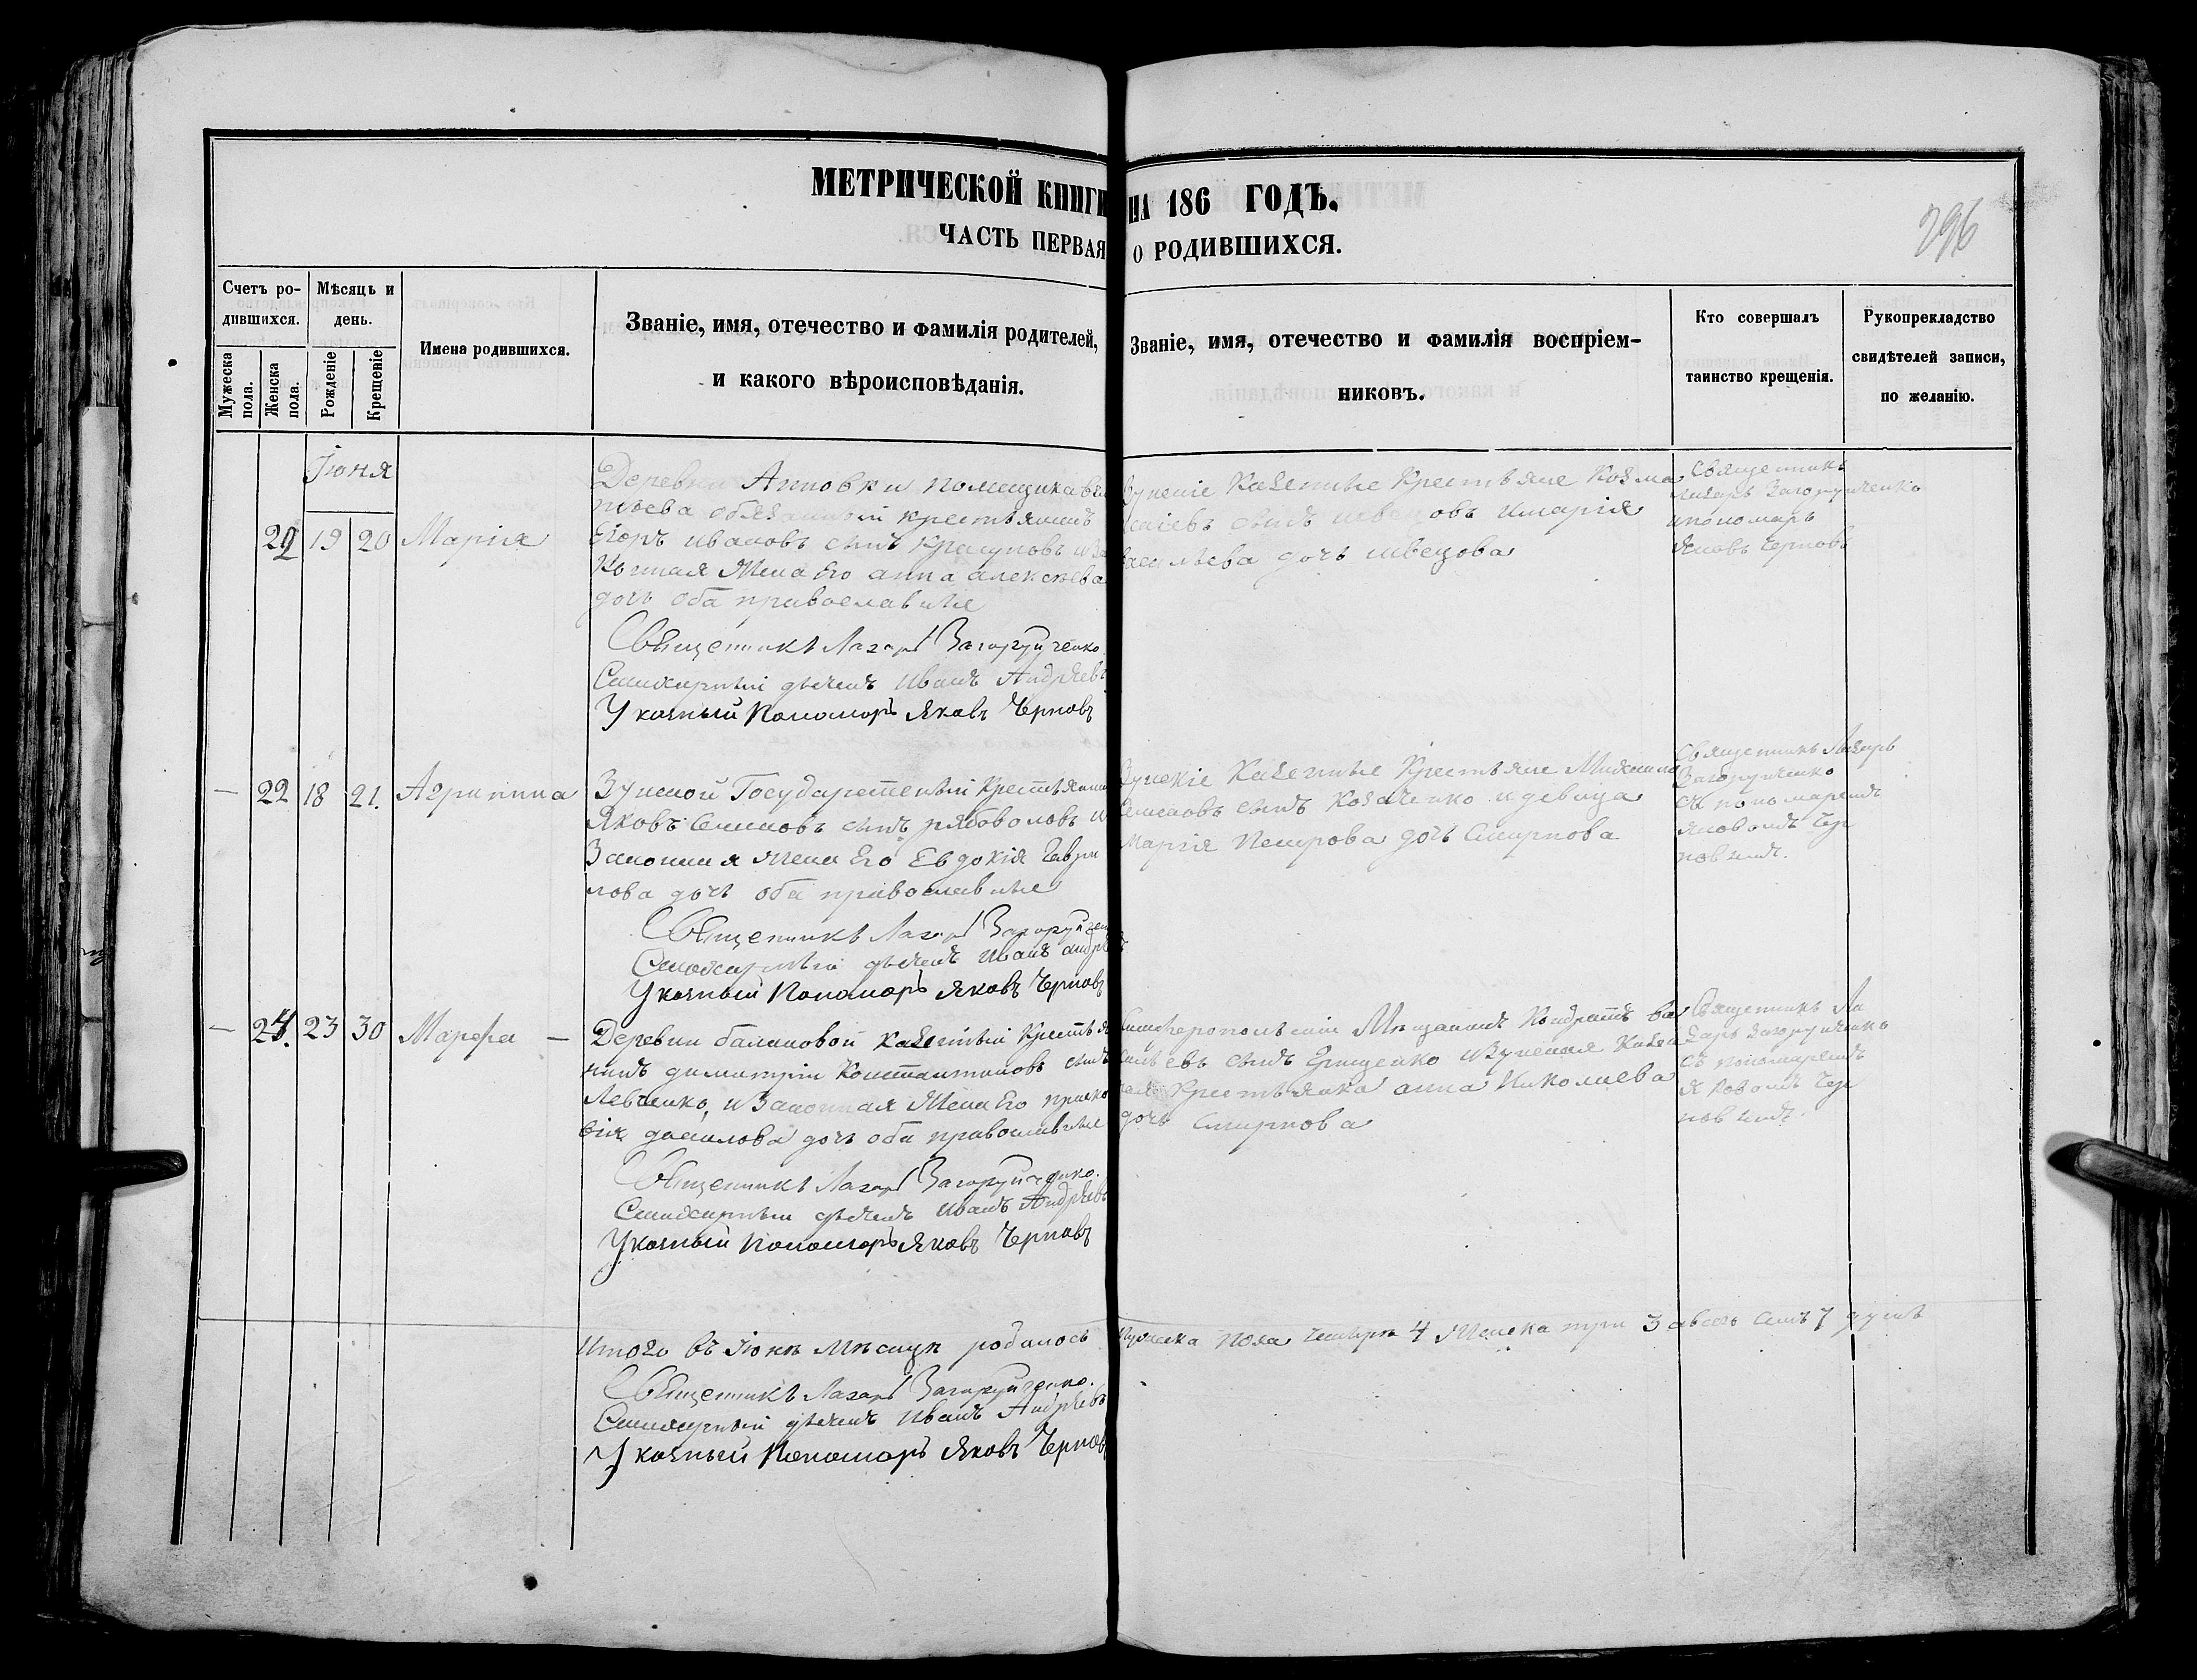 МЕТРИЧЕСКОЙ КНИГИ НА 186 ГОДЪ.
296
ЧАСТЬ ПЕРВАЯ О РОДИВШИХСЯ.
Счетъ ро-
дившихся.
Мужеска пола.
Женска пола.
Мѣсяцъ и
день.
Рожденіе
Крещеніе
Имена родившихся.
Званіе, имя, отечество и фамилія родителей,
и какого вѣроисповѣданія.
Званіе, имя, отечество и фамилія воспріем-
никовъ.
Кто совершалъ
таинство крещенія.
Рукоприкладство
свидѣтелей записи,
по желанію.
Іюня
19 20 Марія
Деревни Анновки помещика
обязанный крестьянинъ
Егоръ Ивановъ сынъ
Жена Его анна алексѣева
дочь оба православные
Священникъ Лазарь Загоруйченко.
дьячекъ Иванъ Андрѣевъ
Указный Пономарь Яковъ Черновъ
Казенные Крестьяне Козма
сынъ швецовъ имарія
дочь швецова
Священникъ
Лазарь Загоруйченко
ипономарь
Яковъ Черновъ
— 22 18 21. Агрипина
Зуйской Государственный Крестьянинъ
Яковъ Семеновъ сынъ рябоволовъ и
Законная жена Его Евдокія Гаври
лова дочь оба православные
Священникъ Лазарь Загоруйчен
дьячекъ Иванъ
Указный Пономарь Яковъ Черновъ
Зуйскіе Казенные Крестьяне Михаилъ
Семеновъ сынъ Козаченко идевица
Марія Петрова дочь Смирнова
Священникъ Лазарь
Загоруйченко
съ пономаремъ
Яковомъ Чер
новымъ.
— 24. 23 30 Марфа —
Деревни балановой Казенный Крестья
нинъ димитрій Константиновъ сынъ
Левченко, изаконная Жена Его праско
вія данилова дочь оба православные
Священникъ Лазарь Загоруйченко.
дьячекъ Иванъ Андрѣевъ
Указный Пономарь Яковъ Черновъ
Симферопольскій Мѣщанинъ Кондратъ Ва
сильевъ сынъ Грищенко изуйская Казен
ная Крестьянка анна Николаева
дочь Смирнова
Священникъ Ла
зарь Загоруйченко
съ пономаремъ
Яковомъ Чер
новымъ.
Итого въ Іюнѣ Мѣсяцѣ родилось Мужеска пола четыре 4 Женска три 3 авсехъ семь 7 душъ
Священникъ Лазарь Загоруйченко.
дьячекъ Иванъ Андрѣевъ
Указный Пономарь Яковъ Чернов